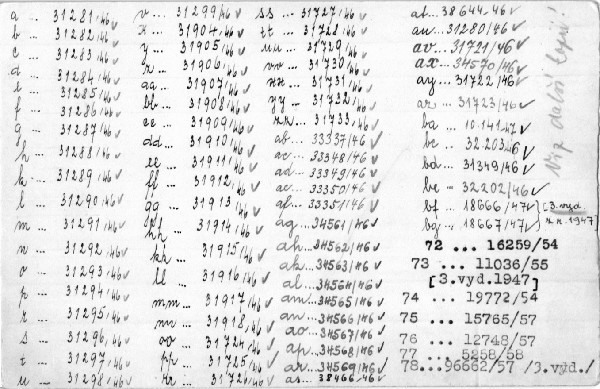 a ... 31281/46 ✓
b ... 31282/46 ✓
c ... 31283/46 ✓
d ... 31284/46 ✓
e ... 31285/46 ✓
f ... 31286/46 ✓
g ... 31287/46 ✓
h ... 31288/46 ✓
k ... 31289/46 ✓
l ... 31290/46 ✓
m ... 31291/46 ✓
n ... 31292/46 ✓
o ... 31293/46 ✓
p ... 31294/46 ✓
r ... 31295/46 ✓
s ... 31296/46 ✓
t ... 31297/46 ✓
u ... 31298/46 ✓
v ... 31299/46 ✓
x ... 31904/46 ✓
y ... 31905/46 ✓
z ... 31906/46 ✓
aa ... 31907/46 ✓
bb ... 31908/46 ✓
cc ... 31909/46 ✓
dd ... 31910/46 ✓
ee ... 31911/46 ✓
ff ... 31912/46 ✓
gg ... 31913/46 ✓
hh ... 31914/46 ✓
kk ... 31915/46 ✓
ll ... 31916/46 ✓
mm ... 31917/46 ✓
nn ... 31918/46 ✓
oo ... 31724/46 ✓
pp ... 31725/46 ✓
rr ... 31726/46 ✓
ss ... 31727/46 ✓
tt ... 31728/46 ✓
uu ... 31729/46 ✓
vv ... 31730/46 ✓
xx ... 31731/46 ✓
yy ... 31732/46 ✓
zz ... 31733/46 ✓
ab ... 33337/46 ✓
ac ... 33348/46 ✓
ad ... 33349/46 ✓
ae ... 33350/46 ✓
af ... 33351/46 ✓
ag ... 34561/46 ✓
ah ... 34562/46 ✓
ak ... 34563/46 ✓
al ... 34564/46 ✓
am ... 34565/46 ✓
an ... 34566/46 ✓
ao ... 34567/46 ✓
ap ... 34568/46 ✓
ar ... 34569/46 ✓
as ... 38466/46 ✓
at ... 38644/46 ✓
au ... 31280/46 ✓
av ... 31721/46 ✓
ax ... 34570/46 ✓
ay ... 31722/46 ✓
az ... 31723/46 ✓
ba ... 10.141/47 ✓
bc ... 32203/46 ✓
bd ... 31349/46 ✓
be ... 32202/46 ✓
bf ... 18666/47 ✓ (3. vyd.
bg ... 18667/47 ✓ z r. 1947)
72 ... 16259/54
73 ... 11036/55
[3.vyd.1947]
74 ... 19772/54
75 ... 15765/57
76 ... 12748/57
77 ... 5258/58
78...96662/57 /3.vyd./
Viz další lepič!